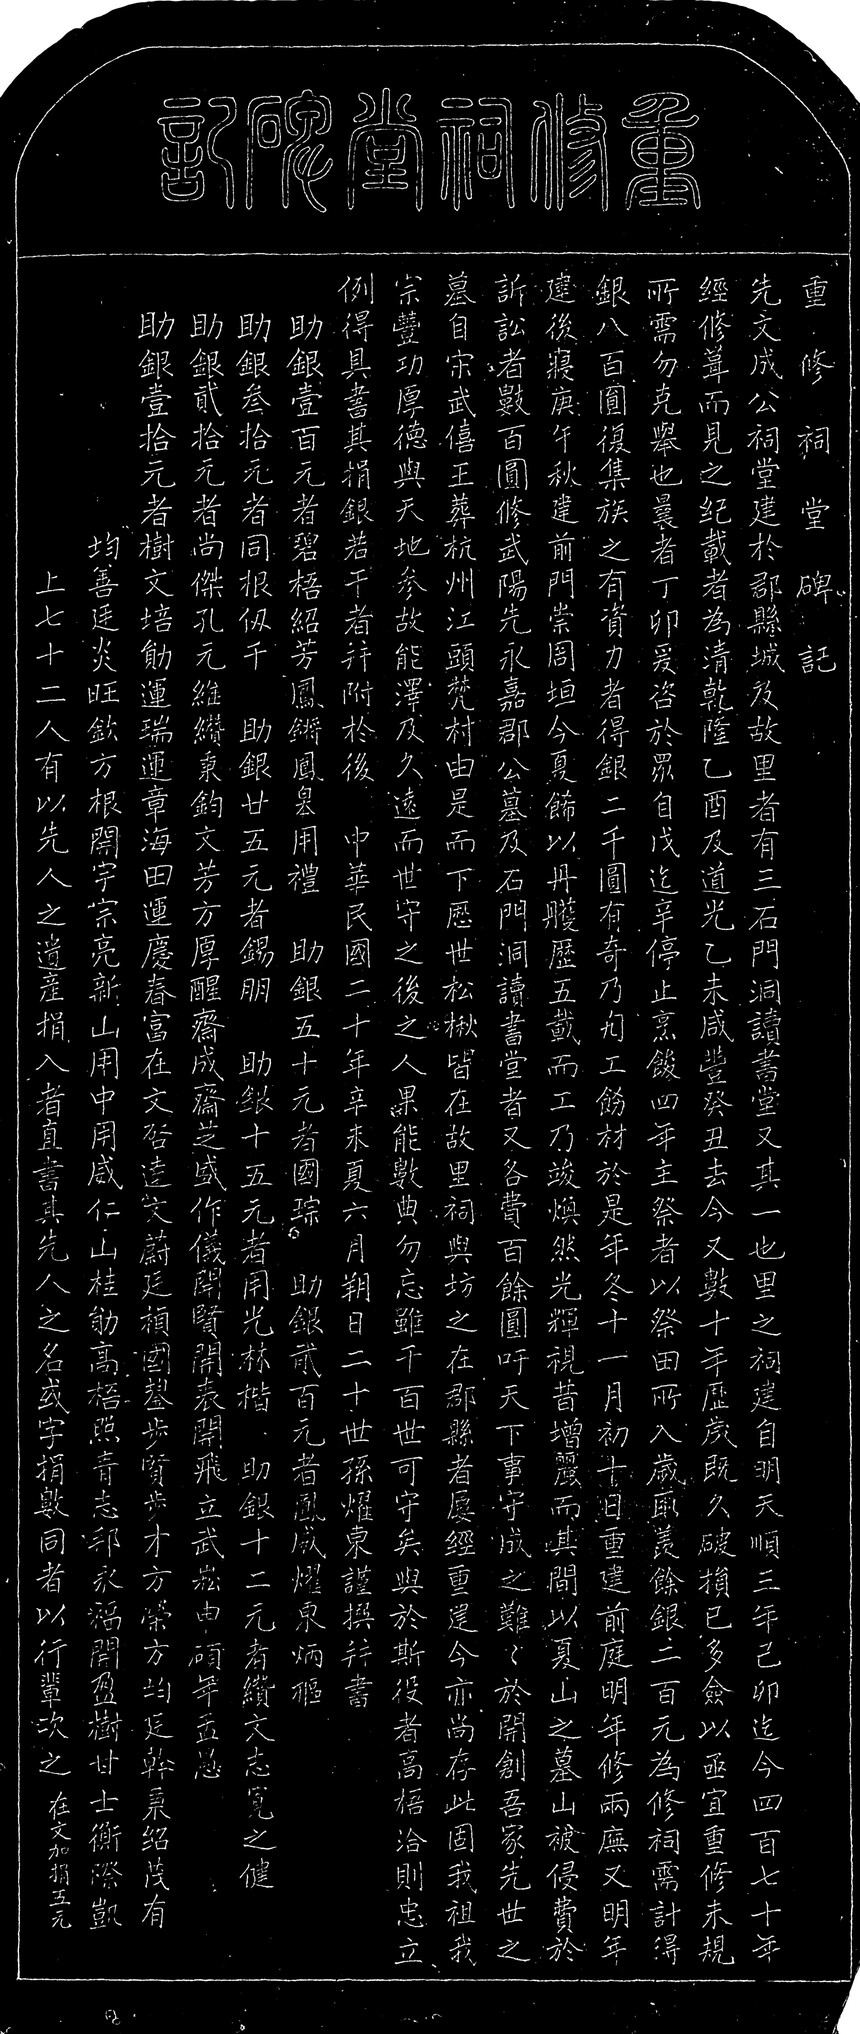 重修祠堂碑記
重修祠堂碑記
先文成公祠堂建於郡縣城及故里者有三石門洞讀書堂又其一也里之祠建自明天順三年己卯迄今四百七十年
經修葺而見之紀載者為清乾隆乙酉及道光乙未咸豐癸丑去今又數十年歷歲既久破損已多僉以亟宜重修未規
所需勿克舉也曩者丁卯爰咨於眾自戊迄辛停止烹餕四年主祭者以祭田所入歲取羨餘銀二百元為修祠需計得
銀八百圓復集族之有資力者得銀二千圓有奇乃勼工飭材於是年冬十一月初十日重建前庭明年修兩廡又明年
建後寢庚午秋建前門崇周垣今夏餙以丹雘歷五載而工乃竣煥然光輝視昔增麗而其間以夏山之墓山被侵費於
訴訟者數百圓修武陽先永嘉郡公墓及石門洞讀書堂者又各費百餘圓吁天下事守成之難〻於開創吾家先世之
墓自宋武僖王葬杭州江頭梵村由是而下歷世松楸皆在故里祠與坊之在郡縣者屢經重建今亦尚存此固我祖我
宗豐功厚德與天地參故能澤及久遠而世守之後之人果能數典勿忘雖千百世可守矣與於斯役者高梧洽則忠立
例得具書其捐銀若干者并附於後　中華民國二十年辛未夏六月朔日二十世孫燿東謹撰并書
助銀壹百元者碧梧紹芳鳳鏘鳳皋用禮　助銀五十元者國琮　助銀貳百元者鳳威燿東炳樞
助銀叁拾元者同根伋千　助銀廿五元者錫朋　助銀十五元者用光林楷　助銀十二元者纘文志寬之健
助銀貳拾元者尚傑孔元維纘秉鈞文芳方厚醒齋成齋芝盛作儀開賢開表開飛立武崧申碩年孟愚
助銀壹拾元者樹文培勛運瑞運章海田運慶春富在文啓達文蔚廷楨國鋆步賢步才方榮方均廷幹秉紹茂有
均善廷炎旺欽方根開宇宗亮新山用中用威仁山桂勛高梧熙青志邦永福開盈樹甘士衡際凱
上七十二人有以先人之遺產捐入者直書其先人之名或字捐數同者以行輩次之 在文加捐五元